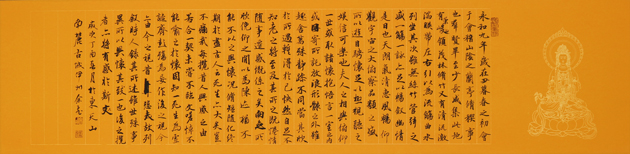 永和九年歲在癸丑暮春之初會
于會稽山陰之蘭亭脩稧事
也羣賢畢至少長咸集此地
有崇山峻領茂林脩竹又有清流激
湍暎帶左右引以為流觴曲水
列坐其次雖無絲竹管弦之
盛一觴一詠亦足以暢敘幽情
是日也天朗氣清惠風和暢仰
觀宇宙之大俯察品類之盛
所以遊目騁懷足以極視聽之
娛信可樂也夫人之相與俯仰
一世或取諸懷抱悟言一室之內
或因寄所託放浪形骸之外雖
趣舍萬殊靜躁不同當其欣
於所遇暫得於己怏然自足不
知老之將至及其所之既惓情
隨事遷感慨係之矣向之所
欣俛仰之閒以為陳迹猶不
能不以之興懷況脩短隨化終
期於盡古人云死生亦大矣豈
不痛哉每攬昔人興感之由
若合一契未嘗不臨文嗟悼不
能喻之於懷固知一死生為虛
誕齊彭殤為妄作後之視今
亦由今之視昔悲夫故列
敘時人錄其所述雖世殊事
異所以興懷其致一也後之攬
者亦將有感於斯文
歲次丁酉 月於東 山
南麓古